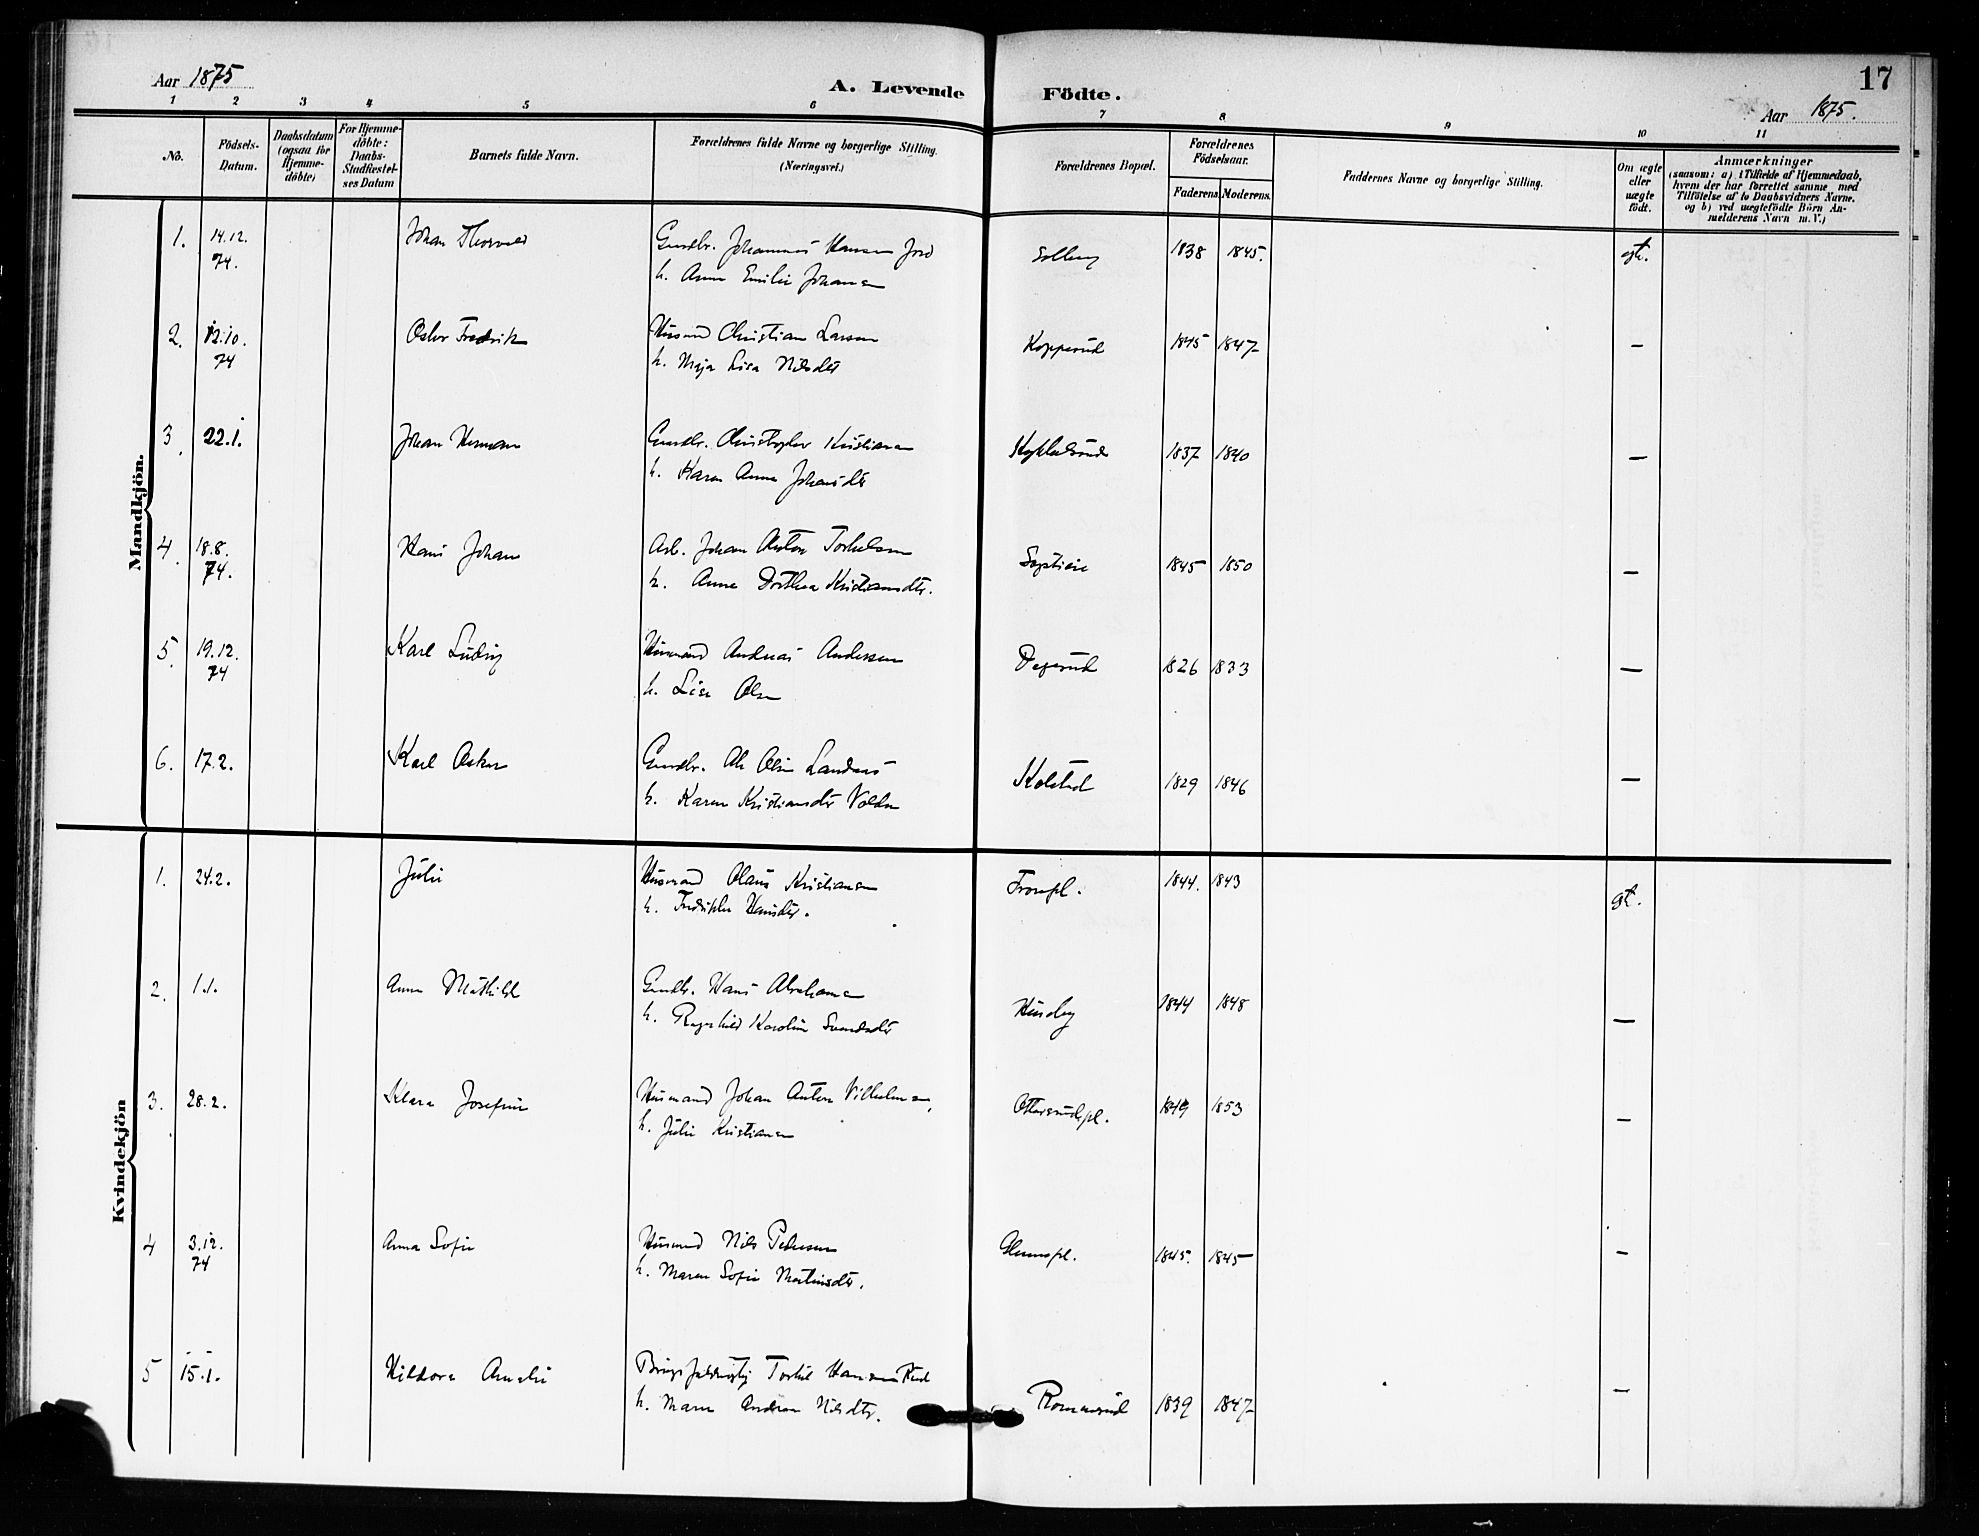 17
Aar 1875
A. Levende Födte.
Aar 1875.
1 2 3 4 5 6 7 8 9 10 11
No.
Födsels-Datum.
Daabsdatum (ogsaa for Hjemme-döbte)
For Hjemme-döbte: Daabs-Stadfæstel-ses Datum
Barnets fulde Navn.
Forældrenes fulde Navne og borgerlige Stilling.
(Næringsvei.)
Forældrenes Bopæl.
Forældrenes Födselsaar.
Faderens. Moderens.
Faddernes Navne og borgerlige Stilling.
Om ægte eller uægte födt.
Anmærkninger
(saasom: a) i Tilfælde af Hjemmedaab,
hvem der har forrettet samme med
Tilföielse af to Daabsvidners Navne.
og b) ved uægtefödte Börn An-
melderens Navn m. V.)
Mandkjön.
1. 14.12. 74. Johan Thorvald Gaardbr. Johannes Hansen 1838 1845. egte.
h. Anna Emilie Johansen
2. 12.10. 74 Oskar Fredrik Husmd Christian Larsen Kopperud 1845 1847 —
h. Maja Lisa Nilsdtr
3. 22.1. Johan Herman Gaardbr. Christopher Kristiansen 1837 1840 —
h. Karen Anna Johansdtr
4. 18.8. 74. Hans Johan Arb. Johan Anton Torkelsen 1845 1850 —
h. Anne Dorthea Kristiansdtr.
5. 19.12. 74 Karl Ludvig Husmand Andreas Andersen Degerud 1826 1833 —
h. Lise Olsen
6. 17.2. Karl Oskar Gaardbr. Ole Olsen 1829 1846 —
h. Karen Kristiansdtr Volden
Kvindekjön
1. 24.2. Julie Husmand Olaus Kristiansen 1844. 1843 gte.
h. Hansdtr.
2. 1.1. Anna Mathilde Gaardbr. Hans Abrahamsen Huseby 1844 1848 —
h. Ragnhild Karoline Svendsdtr
3. 28.2. Klara Josefine Husmand Johan Anton Vilhelmsen, Ottersrudpl. 1849 1853 —
h. Julie Kristiansen
4 3.12. 74 Anna Sofie Husmand Nils Pedersen 1845. 1845 —
h. Maren Sofie Martinsdtr.
5 15.1. Amalie Torkil Hansen 1839 1847 —
h. Maren Andrea Nilsdtr.